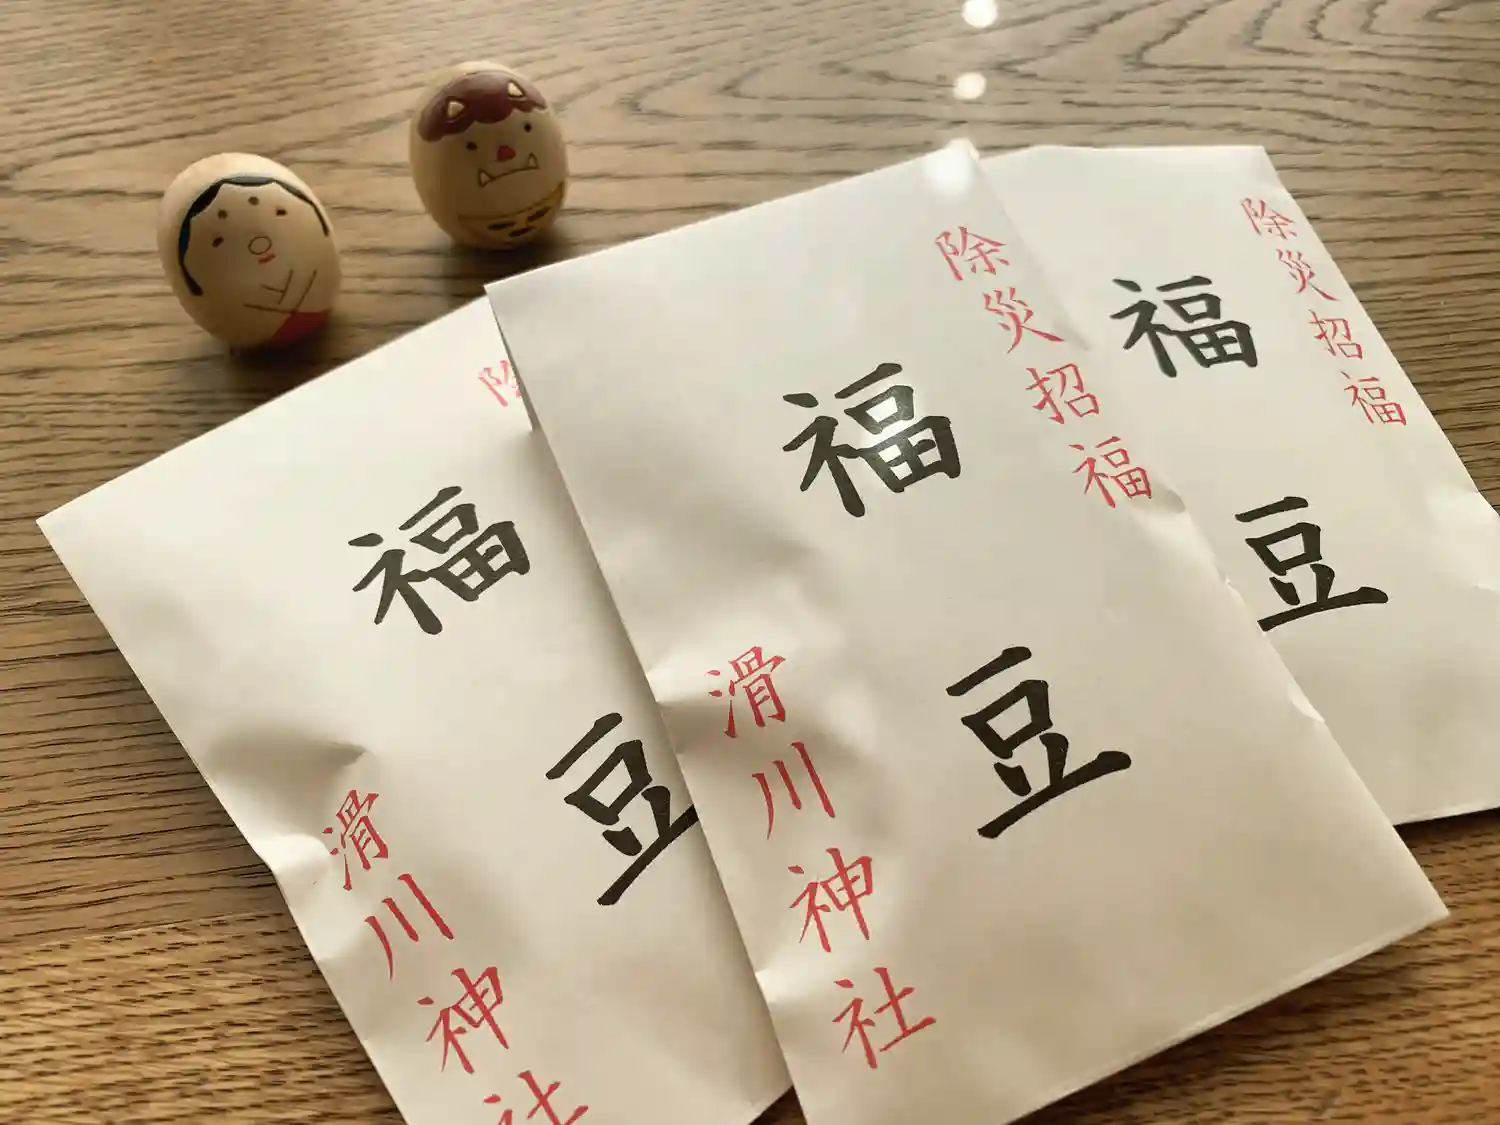 除災招福
福豆
滑川神社
除災招福
福豆
除
福豆
滑川神社